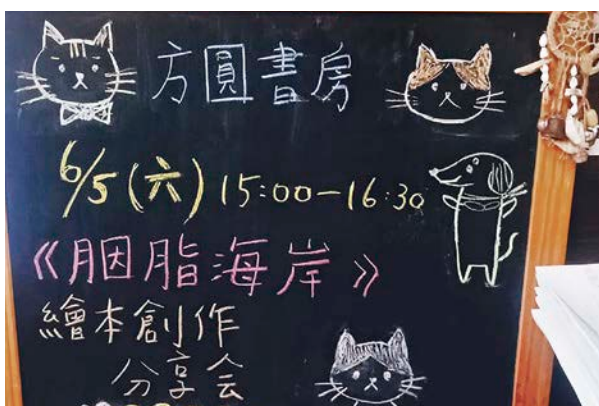 方圓書房
6/5(六)15:00-16:30
《胭脂海岸》
繪本創作
分享会